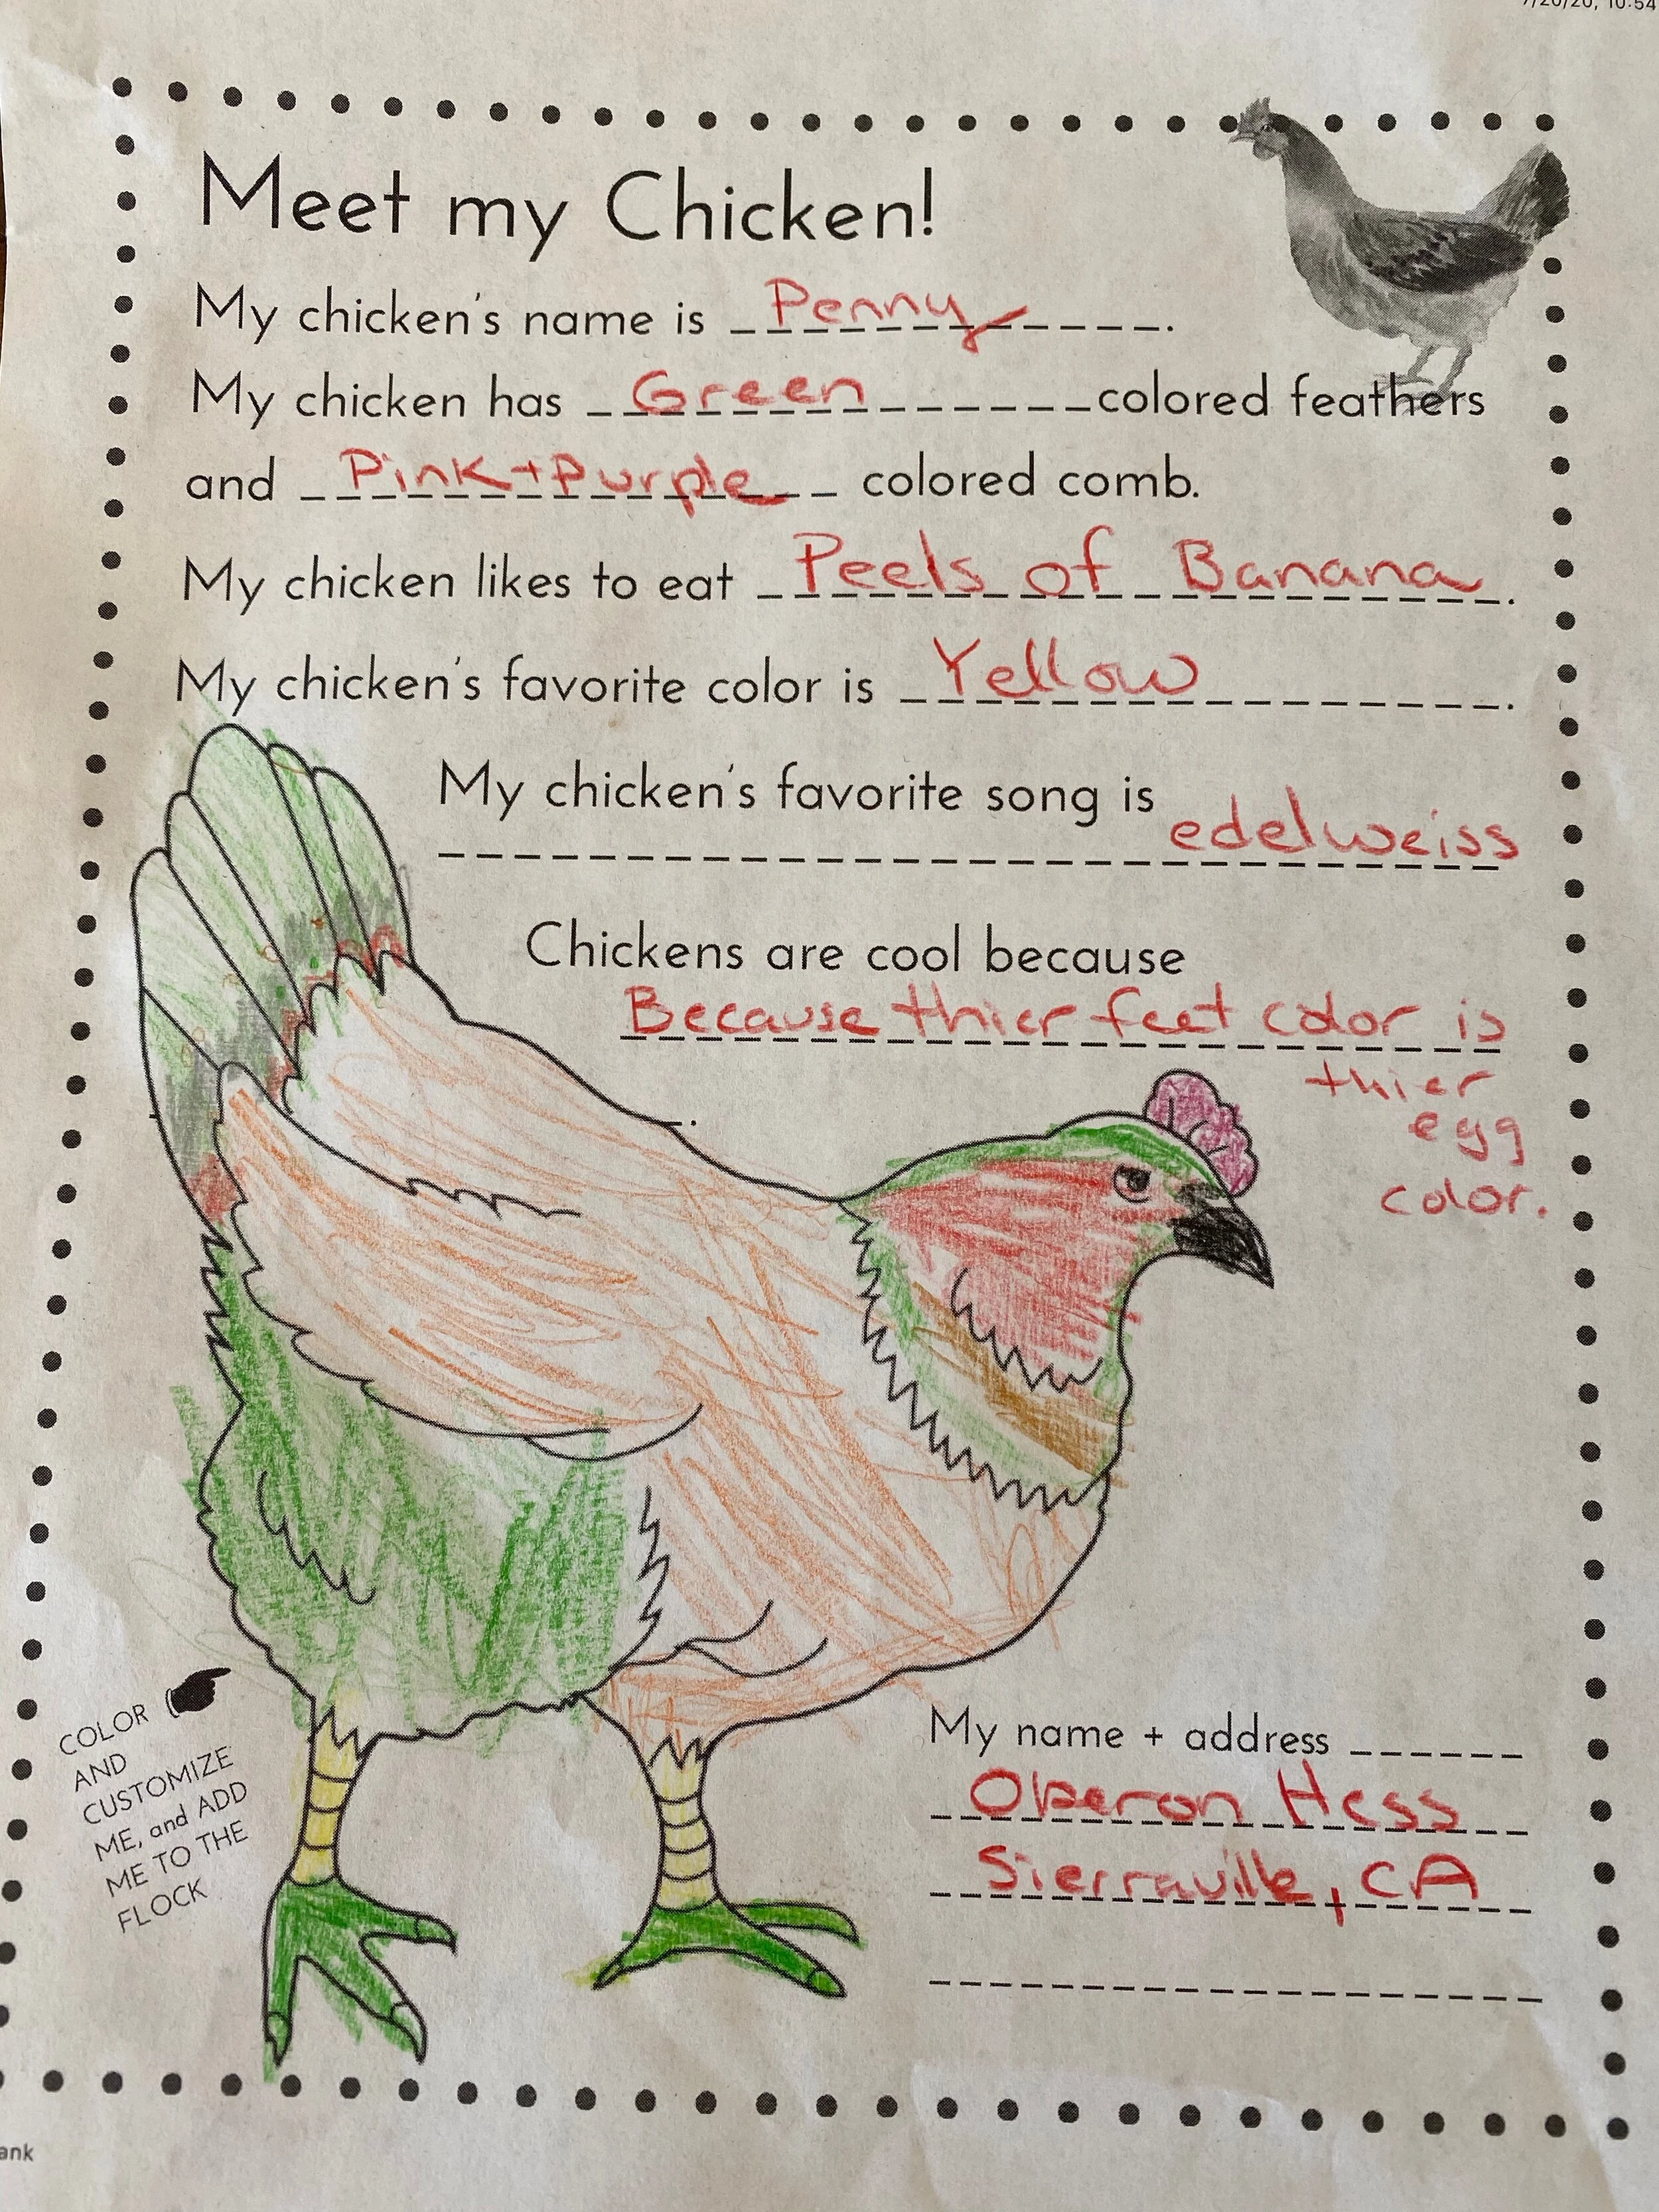 7/20/20, 10:54
Meet my Chicken!
My chicken's name is Penny.
My chicken has Green colored feathers
and Pink + Purple colored comb.
My chicken likes to eat Peels of Banana.
My chicken's favorite color is Yellow.
My chicken's favorite song is
edelweiss
Chickens are cool because
Because thier feet color is
thier
egg
color.
COLOR
AND
CUSTOMIZE
ME, and ADD
ME TO THE
FLOCK
My name + address
Oberon Hess
Sierraville, CA